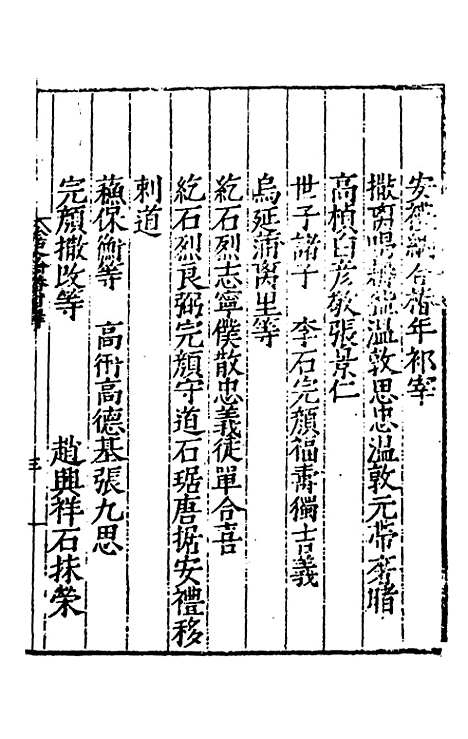 安禮納合椿年祁宰
撒离喝耨盌溫敦思忠溫敦元帶孛睹
高楨白彦敬張景仁
世子諸子　李石完顏福壽獨吉義
烏延蒲离黑等
紇石烈志寧僕散忠義徒單合喜
紇石烈良弼完顏守道石琚唐括安禮移
刺道
蘓保衡等　高衎高德基張九思
完顏撒改等　趙興祥石抹榮
三